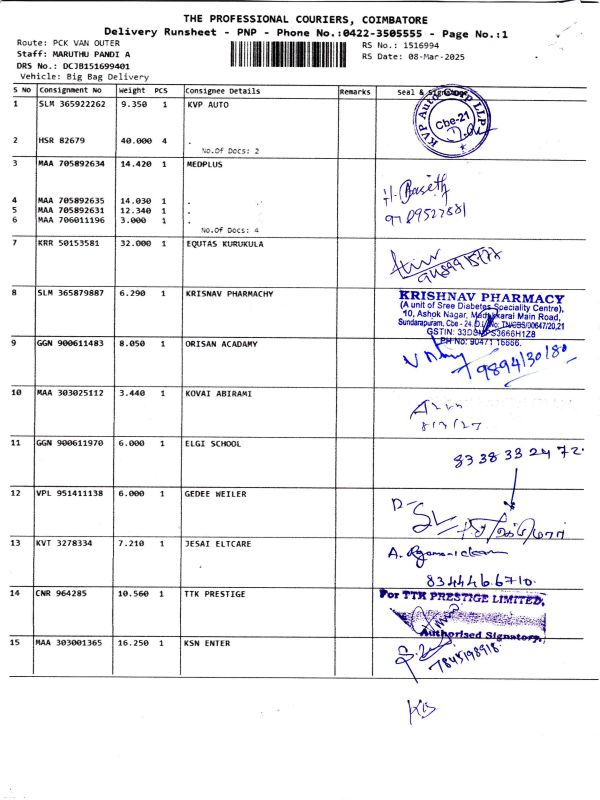 THE PROFESSIONAL COURIERS, COIMBATORE
Delivery Runsheet - PNP - Phone No.:0422-3505555 - Page No.:1
Route: PCK VAN OUTER
Staff: MARUTHU PANDI A
DRS No.: DCJB151699401
Vehicle: Big Bag Delivery
RS No.: 1516994
RS Date: 08-Mar-2025
S No Consignment No Weight PCS Consignee Details Remarks Seal & Signature
1 SLM 365922262 9.350 1 KVP AUTO
KVP Auto Corp LLP
Cbe-21
2 HSR 82679 40.000 4 .
No.Of Docs: 2
3 MAA 705892634 14.420 1 MEDPLUS
4 MAA 705892635 14.030 1 .
5 MAA 705892631 12.340 1 .
6 MAA 706011196 3.000 1 .
No.Of Docs: 4
7 KRR 50153581 32.000 1 EQUTAS KURUKULA
8 SLM 365879887 6.290 1 KRISNAV PHARMACHY
KRISHNAV PHARMACY
(A unit of Sree Diabetes Speciality Centre),
10, Ashok Nagar, Madukkarai Main Road,
Sundarapuram, Cbe - 24.
9 GGN 900611483 8.050 1 ORISAN ACADAMY
PH No: 90471 16666.
9894130180
10 MAA 303025112 3.440 1 KOVAI ABIRAMI
11 GGN 900611970 6.000 1 ELGI SCHOOL
83 38 33 24 72
12 VPL 951411138 6.000 1 GEDEE WEILER
13 KVT 3278334 7.210 1 JESAI ELTCARE
8344466710
14 CNR 964285 10.560 1 TTK PRESTIGE
For TTK PRESTIGE LIMITED,
Authorised Signatory.
15 MAA 303001365 16.250 1 KSN ENTER
7845198918